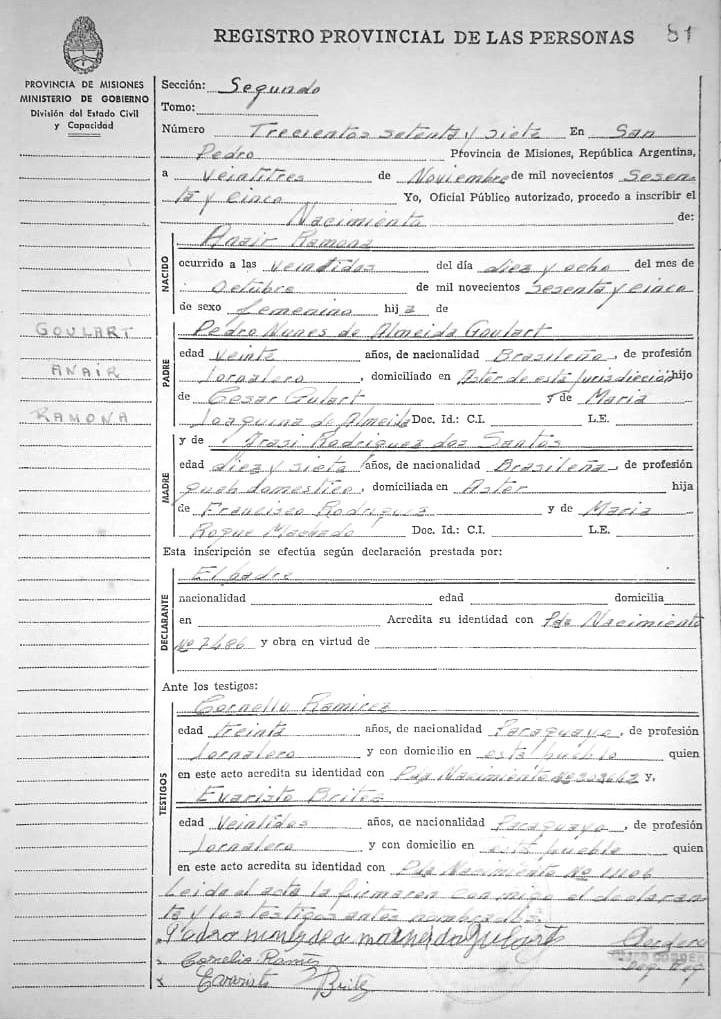 REGISTRO PROVINCIAL DE LAS PERSONAS 51
PROVINCIA DE MISIONES
MINISTERIO DE GOBIERNO
División del Estado Civil
y Capacidad
GOULART
ANAIR
RAMONA
Sección: Segundo
Tomo:
Número Trecientos setenta y siete En San
Pedro Provincia de Misiones, República Argentina,
a Veintitres de Noviembre de mil novecientos Sesen-
ta y cinco Yo, Oficial Público autorizado, procedo a inscribir el
Nacimiento de:
NACIDO
Anair Ramona
ocurrido a las Veintidos del día diez y ocho del mes de
Octubre de mil novecientos Sesenta y cinco
de sexo femenino hija de
PADRE
Pedro Nunes de Almeida Goulart
edad Veinte años, de nacionalidad Brasileña, de profesión
Jornalero, domiciliado en Aster de esta jurisdiccion hijo
de Cesar Gulart y de Maria
Joaquina de Almeida Doc. Id.: C.I. L.E.
MADRE
y de Irasi Rodriguez dos Santos
edad diez y siete años, de nacionalidad Brasileña, de profesión
queh domestico, domiciliada en Aster hija
de Francisco Rodriguez y de Maria
Roque Machado Doc. Id.: C.I. L.E.
Esta inscripción se efectúa según declaración prestada por:
DECLARANTE
El padre
nacionalidad edad domicilia
en Acredita su identidad con Pda Nacimiento
Nº 7486 y obra en virtud de
Ante los testigos:
TESTIGOS
Cornelio Ramirez
edad treinta años, de nacionalidad Paraguayo, de profesión
Jornalero y con domicilio en este pueblo quien
en este acto acredita su identidad con Pda Nacimiento Nº y,
Evaristo Britez
edad Veintidos años, de nacionalidad Paraguayo, de profesión
Jornalero y con domicilio en este pueblo quien
en este acto acredita su identidad con Pda Nacimiento Nº 11106
Leida el acta la firmaron con migo el declaran-
te y los testigos antes nombrados.
Cornelio Ramirez
Evaristo Britez